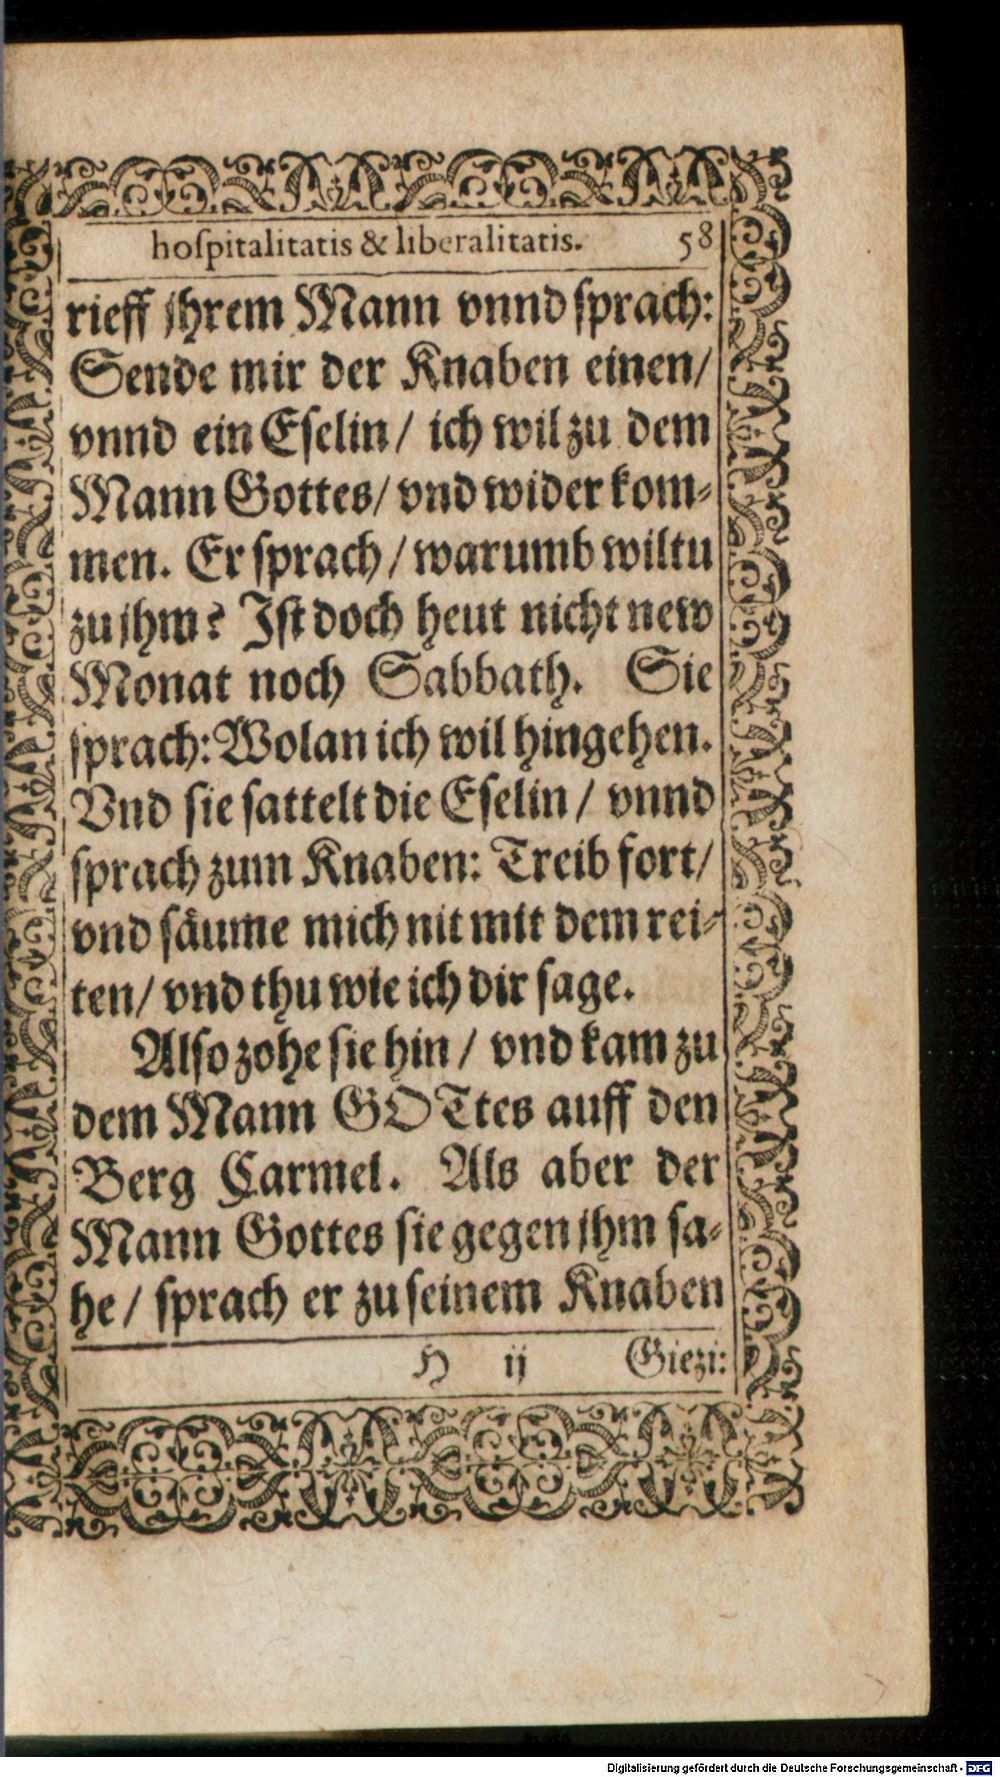 hoſpitalitatis & liberalitatis. 58
rieff jhrem Mann vnnd ſprach:
Sende mir der Knaben einen/
vnnd ein Eſelin / ich wil zu dem
Mann Gottes/ vnd wider kom⸗
men. Er ſprach / warumb wiltu
zu jhm? Iſt doch heut nicht new
Monat noch Sabbath. Sie
ſprach: Wolan ich wil hingehen.
Vnd ſie ſattelt die Eſelin / vnnd
ſprach zum Knaben: Treib fort/
vnd ſäume mich nit mit dem rei⸗
ten/ vnd thu wie ich dir ſage.
Alſo zohe ſie hin / vnd kam zu
dem Mann GOTtes auff den
Berg Carmel. Als aber der
Mann Gottes ſie gegen jhm ſa⸗
he / ſprach er zu ſeinem Knaben
H ij Giezi:
Digitalisierung gefördert durch die Deutsche Forschungsgemeinschaft - DFG